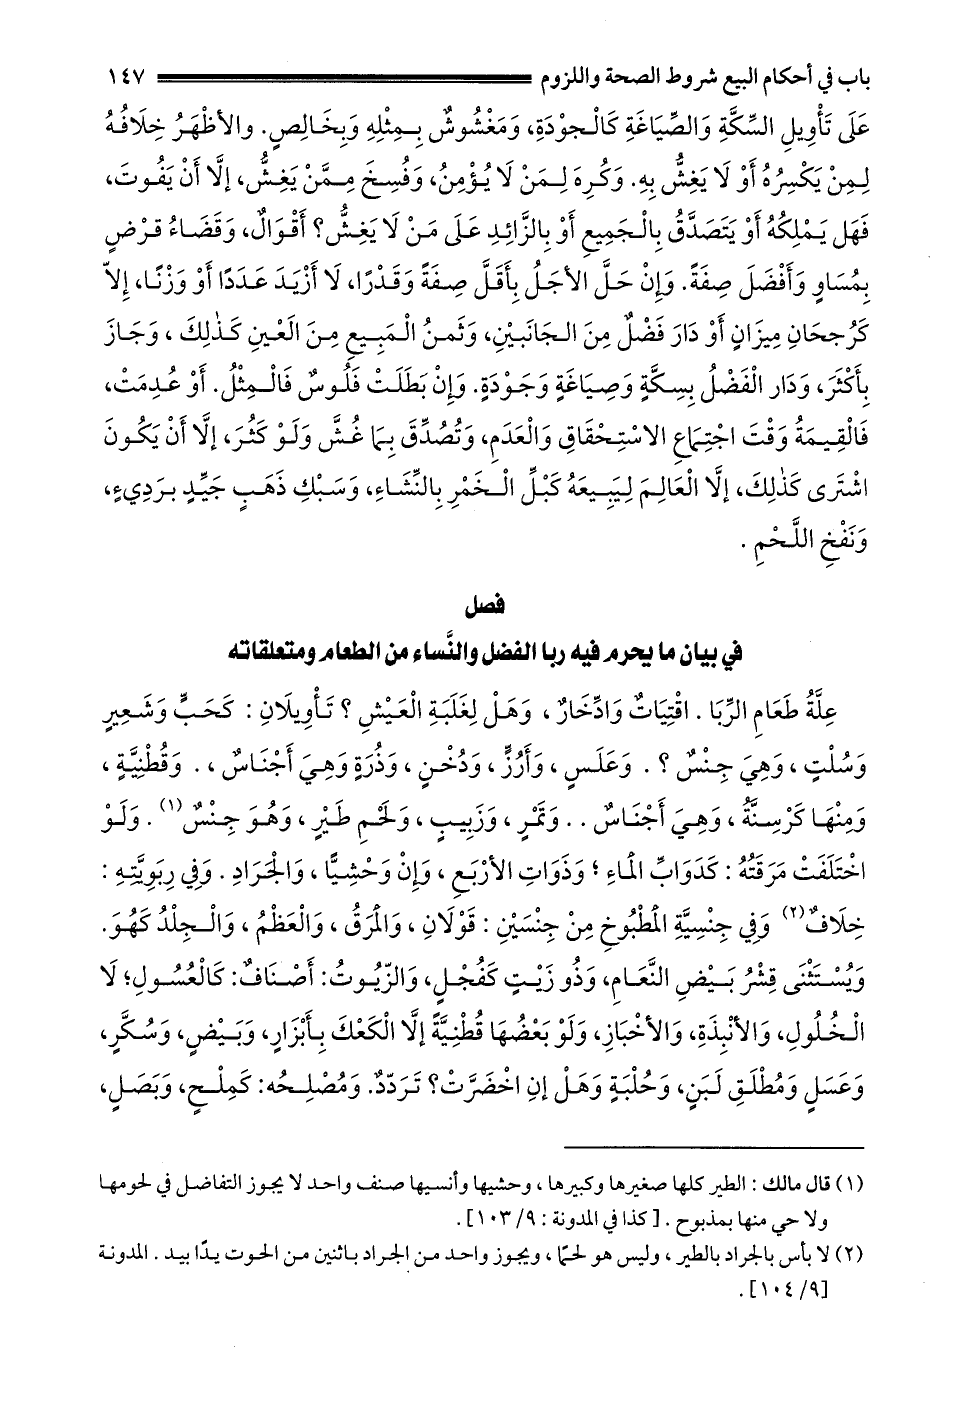 باب في أحكام البيع شروط الصحة واللزوم ١٤٧
عَلَى تَأْوِيلِ السِّكَّةِ وَالصِّيَاغَةِ كَالْجودَةِ، وَمَغْشُوشٌ بِمِثْلِهِ وَبِخَالِصٍ. والأظْهَرُ خِلَافُهُ
لِمِنْ يَكْسِرُهُ أَوْ لَا يَغِشُّ بِهِ. وَكُرِهَ لِمَنْ لَا يُؤْمِنُ، وَفُسِخَ مِمَّنْ يَغِشُّ، إلَّا أَنْ يَفُوتَ،
فَهَل يَمْلِكُهُ أَوْ يَتَصَدَّقُ بِالْجَمِيعِ أَوْ بِالزَّائِدِ عَلَى مَنْ لَا يَغِشُّ؟ أَقْوَالٌ، وَقَضَاءُ قرْضٍ
بِمُسَاوٍ وَأَفْضَلَ صِفَةً. وَإِنْ حَلَّ الأجَلُ بِأَقَلَّ صِفَةً وَقَدْرًا، لَا أَزْيَدَ عَدَدًا أَوْ وَزْنًا، إِلاّ
كَرُجحَانِ مِيزَانٍ أَوْ دَارَ فَضْلٌ مِنَ الجَانبَيْنِ، وَثَمنُ الْمَبِيعِ مِنَ الْعَيْنِ كَذٰلِكَ ، وَجَازَ
بِأَكْثَرَ، وَدَار الْفَضْلُ بِسِكَّةٍ وَصِيَاغَةٍ وَجَوْدَةٍ. وَإِنْ بَطَلَتْ فلُوسٌ فَالْمِثْلُ. أَوْ عُدِمَتْ،
فَالْقِيمَةُ وَقْتَ اجْتِمَاعِ الاسْتِحْقَاقِ وَالْعَدَمِ، وَتُصُدِّقَ بِمَا غُشَّ وَلَوْ كَثُرَ، إلَّا أَنْ يَكُونَ
اشْتَرى كَذٰلِكَ، إلَّا الْعَالِمَ لِيَبِيعَهُ كَبَلِّ الْخَمْرِ بِالنِّشَاءِ، وَسَبْكِ ذَهَبٍ جَيِّدٍ بِرَدِيءٍ،
وَنَفْخِ اللَّحْمِ .
فصل
في بيان ما يحرم فيه ربا الفضل والنَّساء من الطعام ومتعلقاته
عِلَّةُ طَعَامِ الرِّبَا . اقْتِيَاتٌ وَادِّخَارٌ ، وَهَلْ لِغَلَبَةِ الْعَيْشِ ؟ تَأْوِيلَانِ : كَحَبٍّ وَشَعِيرٍ
وَسُلْتٍ ، وَهِيَ جِنْسٌ ؟ . وَعَلَسٍ ، وَأَرُزٍّ ، وَدُخْنٍ ، وَذُرَةٍ وَهِيَ أَجْنَاسٌ ، . وَقُطْنِيَّةٍ ،
وَمِنْهَا كَرْسِنَّةُ ، وَهِيَ أَجْنَاسٌ . . وَتَمْرٍ ، وَزَبِيبٍ ، وَلَحْمِ طَيْرٍ ، وَهُوَ جِنْسٌ (١) . وَلَوْ
اخْتَلَفَتْ مَرَقَتُهُ : كَدَوَابِّ المَاءِ ؛ وَذَوَاتِ الأَرْبَعِ ، وَإِنْ وَحْشِيًّا ، وَالْجَرَادِ . وَفِي رِبَوِيَّتِهِ :
خِلَافٌ (٢) وَفِي جِنْسِيَّةِ الْمَطْبُوخِ مِنْ جِنْسَيْنِ : قَوْلَانِ ، وَالمَرَقُ ، وَالْعَظْمُ ، وَالْجِلْدُ كَهُوَ.
وَيُسْتَثْنَى قِشْرُ بَيْضِ النَّعَامِ، وَذُو زَيْتٍ كَفُجْلٍ، وَالزّيُوتُ: أَصْنَافٌ: كَالْعُسُولِ؛ لَا
الْخُلُولِ، وَالأنْبِذَةِ، وَالأخْبَازِ، وَلَوْ بَعْضُهَا قُطْنِيَّةً إلَّا الْكَعْكَ بِأَبْزَارٍ، وَبَيْضٍ، وَسُكَّرٍ،
وَعَسَلٍ وَمُطْلَقِ لَبَنٍ، وَحُلْبَةٍ وَهَلْ إنِ اخْضَرَّتْ؟ تَرَدّدٌ. وَمُصْلِحُه: كَمِلْحٍ، وَبَصَلٍ،
(١) قال مالك : الطير كلها صغيرها وكبيرها ، وحشيها وأنسيها صنف واحد لا يجوز التفاضل في لحومها
ولا حي منها بمذبوح . [ كذا في المدونة : ٩/ ١٠٣].
(٢) لا بأس بالجراد بالطير ، وليس هو لحمًا ، ويجوز واحد من الجراد باثنين من الحوت يدًا بيد . المدونة
[٩/ ١٠٤] .